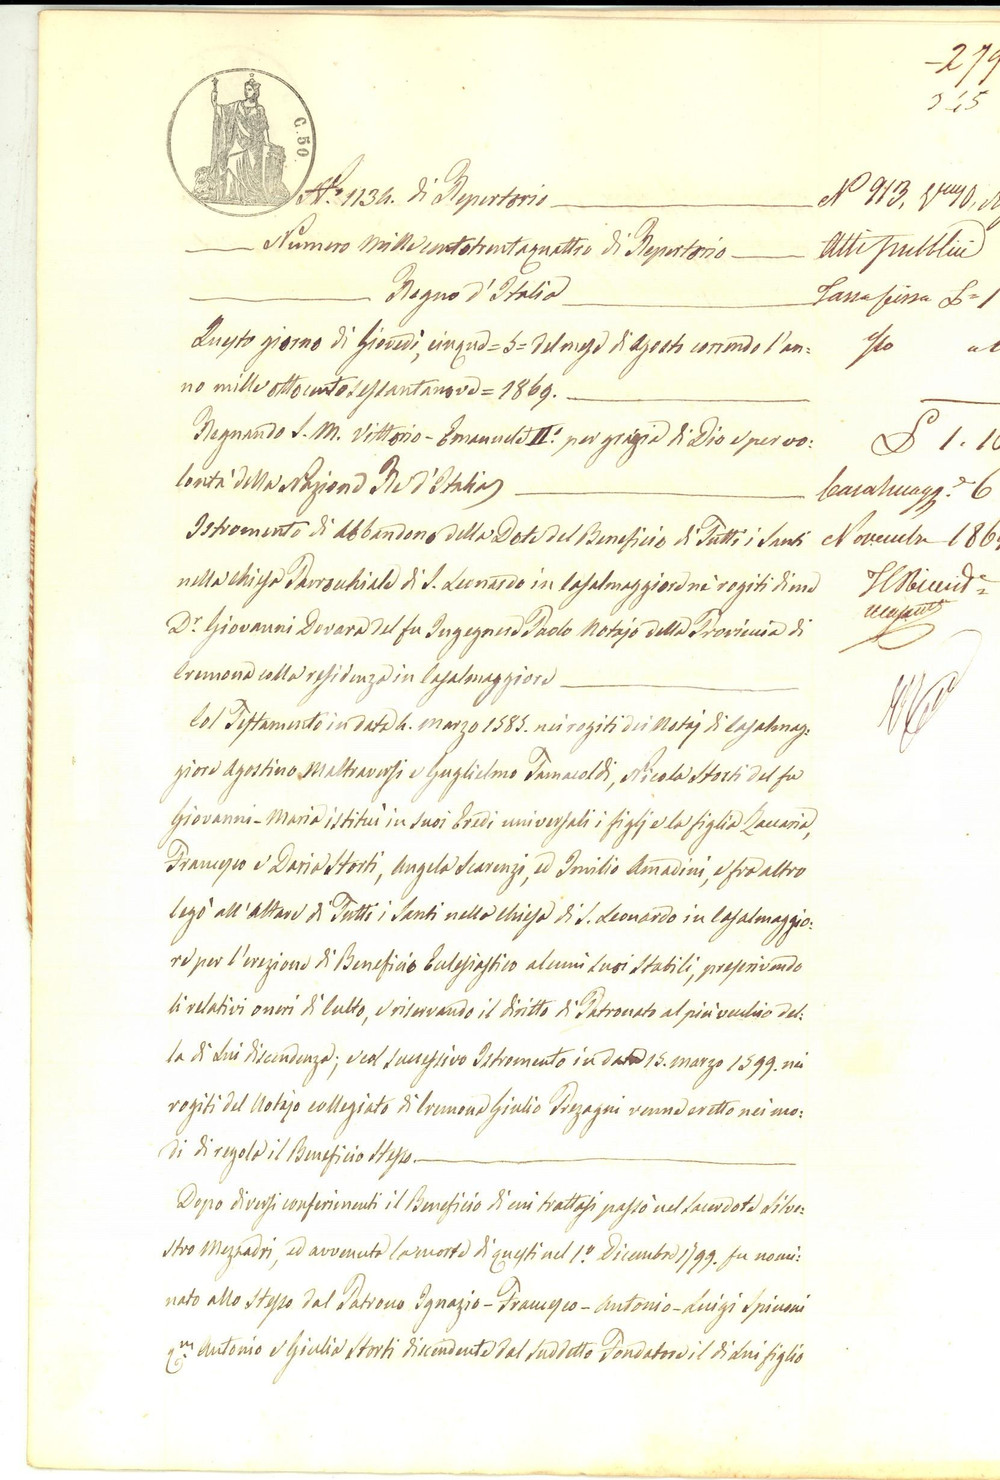 -279
C. 50
N.° 1134. di Repertorio
Numero mille centotrentaquattro di Repertorio
Regno d'Italia
Questo giorno di Giovedì, cinque = 5 = del mese di Agosto correndo l'an:
no mille ottocento sessantanove = 1869.
Regnando S. M. Vittorio - Emanuele II.° per grazia di Dio e per vo:
lontà della Nazione Re d'Italia
Istromento di abbandono della Dote del Beneficio di Tutti i Santi
nella chiesa Parrocchiale di S. Leonardo in Casalmaggiore ne' rogiti di me
D.r Giovanni Dovara del fu Ingegnere Paolo Notajo della Provincia di
Cremona colla residenza in Casalmaggiore
Col Testamento in data 4. marzo 1585. nei rogiti dei Notaj di Casalmag:
giore Agostino Maltraversi e Guglielmo Tamacoldi, Nicola Storti del fu
Giovanni - Maria istituì in suoi Eredi universali i figlj e la figlia Zaccaria,
Francesco e Daria Storti, Angela Scarenzi, ed Imilio Amadini, e fra altro
legò all'Altare di Tutti i Santi nella chiesa di S. Leonardo in Casalmaggio:
re per l'erezione di Beneficio Eclesiastico alcuni suoi Stabili, prescrivendo
li relativi oneri di Culto, e riservando il diritto di Patronato al più vecchio del:
la di Lui discendenza; e col successivo Istromento in data 15. marzo 1599. nei
rogiti del Notajo collegiato di Cremona Giulio Prezagni venne eretto nei mo:
di di regola il Beneficio stesso.
Dopo diversi conferimenti il Beneficio di cui trattasi passò nel Sacerdote Silve:
stro Mezzadri, ed avvenuta la morte di questi nel 1.° Dicembre 1799. fu nomi:
nato allo stesso dal Patrono Ignazio - Francesco - Antonio - Luigi Spinoni
q.m Antonio e Giulia Storti discendente dal suddetto Fondatore il di Lui figlio
N° 913.
Atti pubblici
Tassa fissa £= 1
£ 1. 10
Casalmagg.e 6
Novembre 186
Il Ricevit.e